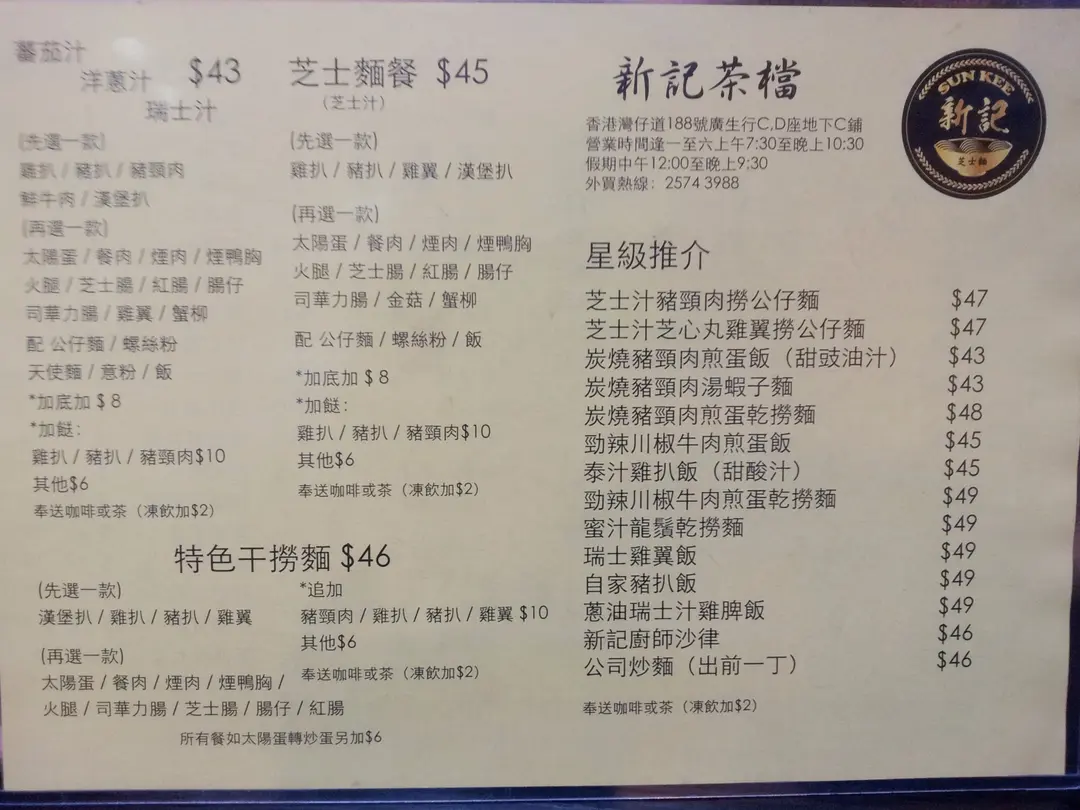 蕃茄汁
洋蔥汁 $43
瑞士汁
(先選一款)
雞扒 / 豬扒 / 豬頸肉
鮮牛肉 / 漢堡扒
(再選一款)
太陽蛋 / 餐肉 / 煙肉 / 煙鴨胸
火腿 / 芝士腸 / 紅腸 / 腸仔
司華力腸 / 雞翼 / 蟹柳
配 公仔麵 / 螺絲粉
天使麵 / 意粉 / 飯
*加底加 $ 8
*加餸:
雞扒 / 豬扒 / 豬頸肉$10
其他$6
奉送咖啡或茶（凍飲加$2）
芝士麵餐 $45
（芝士汁）
(先選一款)
雞扒 / 豬扒 / 雞翼 / 漢堡扒
(再選一款)
太陽蛋 / 餐肉 / 煙肉 / 煙鴨胸
火腿 / 芝士腸 / 紅腸 / 腸仔
司華力腸 / 金菇 / 蟹柳
配 公仔麵 / 螺絲粉 / 飯
*加底加 $ 8
*加餸:
雞扒 / 豬扒 / 豬頸肉$10
其他$6
奉送咖啡或茶（凍飲加$2）
特色干撈麵 $46
(先選一款)
漢堡扒 / 雞扒 / 豬扒 / 雞翼
(再選一款)
太陽蛋 / 餐肉 / 煙肉 / 煙鴨胸 /
火腿 / 司華力腸 / 芝士腸 / 腸仔 / 紅腸
*追加
豬頸肉 / 雞扒 / 豬扒 / 雞翼 $10
其他$6
奉送咖啡或茶（凍飲加$2）
所有餐如太陽蛋轉炒蛋另加$6
新記茶檔
香港灣仔道188號廣生行C,D座地下C鋪
營業時間逢一至六上午7:30至晚上10:30
假期中午12:00至晚上9:30
外買熱線：2574 3988
SUN KEE
新記
芝士麵
星級推介
芝士汁豬頸肉撈公仔麵 $47
芝士汁芝心丸雞翼撈公仔麵 $47
炭燒豬頸肉煎蛋飯（甜豉油汁） $43
炭燒豬頸肉湯蝦子麵 $43
炭燒豬頸肉煎蛋乾撈麵 $48
勁辣川椒牛肉煎蛋飯 $45
泰汁雞扒飯（甜酸汁） $45
勁辣川椒牛肉煎蛋乾撈麵 $49
蜜汁龍鬚乾撈麵 $49
瑞士雞翼飯 $49
自家豬扒飯 $49
蔥油瑞士汁雞脾飯 $49
新記廚師沙律 $46
公司炒麵（出前一丁） $46
奉送咖啡或茶（凍飲加$2）